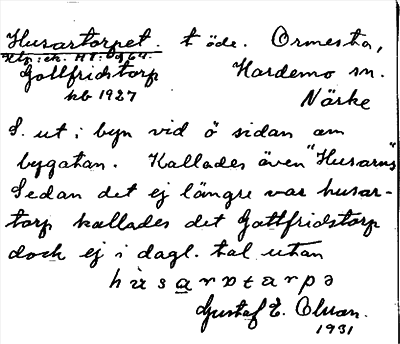 Husartorpet t öde. Ormesta,
Gottfridstorp Hardemo sn.
kb 1927 Närke
L. ut i byn vid ö sidan om
bygatan. Kallades även "Husarns"
Sedan det ej längre var husar-
torp kallades det Gottfridstorp
dock ej i dagl. tal utan
hùsarvtarpə
Gustaf E. Olson.
1931